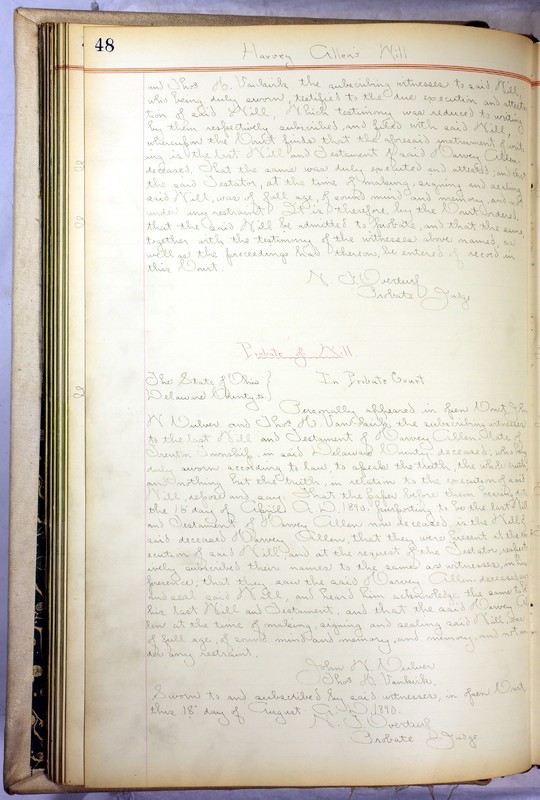 48
Harvey Allen's Will
and Thos. H. Vankirk the subscribing witnesses to said Will;
who being duly sworn, testified to the due execution and attesta
tion of said Will, Which testimony was reduced to writing
by them respectively subscribed, and filed with said Will,
whereupon the Court finds that the aforesaid instrument of writ-
ing is the last Will and Testament of said Harvey Allen,
deceased, That the same was duly executed and attested; and that
the said Testator, at the time of making, signing and sealing
said Will, was of full age, of sound mind and memory, and not
under any restraint. It is therefore, by the Court ordered,
that the said Will be admitted to Probate, and that the same,
together with the testimony of the witnesses above named, as
well as the proceedings had thereon, be entered of record in
this Court.
N. F. Overturf
Probate Judge
Probate of Will
The State of Ohio } In Probate Court
Delaware County, ss }
Personally appeared in open Court, John
W. Nulver and Thos. H. Vankirk, the subscribing witnesses
to the last Will and Testament of Harvey Allen, late of
Trenton Township, in said Delaware County, deceased, who being
duly sworn according to law, to speak the truth, the whole truth
and nothing but the truth, in relation to the execution of said
Will, depose and say; That the paper before them bearing date
the 16 day of April A. D. 1890. purporting to be the last Will
and Testament of Harvey Allen now deceased, is the Will of
said deceased Harvey Allen, that they were present at the ex
ecution of said Will and at the request of the Testator, respect
ively subscribed their names to the same as witnesses, in his
presence; that they saw the said Harvey Allen deceased, sign
and seal said Will, and heard him acknowledge the same to be
his last Will and Testament, and that the said Harvey Al
len at the time of making, signing and sealing said Will, was
of full age, of sound mind and memory, and memory, and not un
der any restraint.
John W. Nulver
Thos. H. Vankirk.
Sworn to and subscribed by said witnesses, in open Court
this 18 day of August A. D. 1890.
N. F. Overturf
Probate Judge